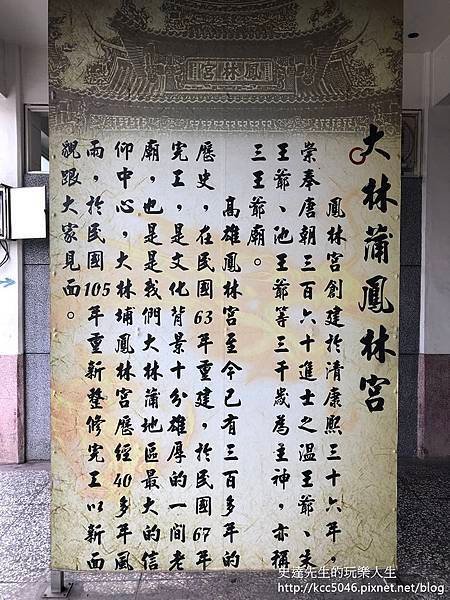 鳳林宮
大林蒲鳳林宮
鳳林宮創建於清康熙三十六年，
崇奉唐朝三百六十進士之溫王爺、朱
王爺、池王爺等三千歲為主神，亦稱
三王爺廟。
高雄鳳林宮至今已有三百多年的
歷史，在民國63年重建，於民國67年
完工，是文化背景十分雄厚的一間老
廟，也是是我們大林蒲地區最大的信
仰中心，大林埔鳳林宮歷經40多年風
雨，於民國105年重新整修完工以新面
貌跟大家見面。
史達先生的玩樂人生
http://kcc5046.pixnet.net/blog